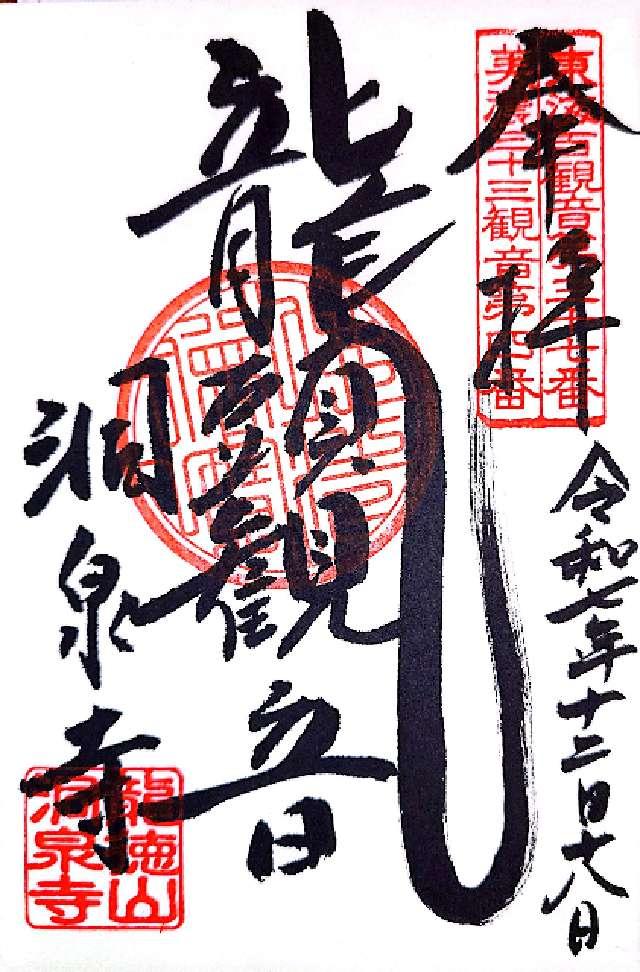 奉拝
東海百観音第三十七番
美濃三十三観音第四番
令和七年十二月十八日
龍頭観音
洞泉寺
龍徳山
洞泉寺